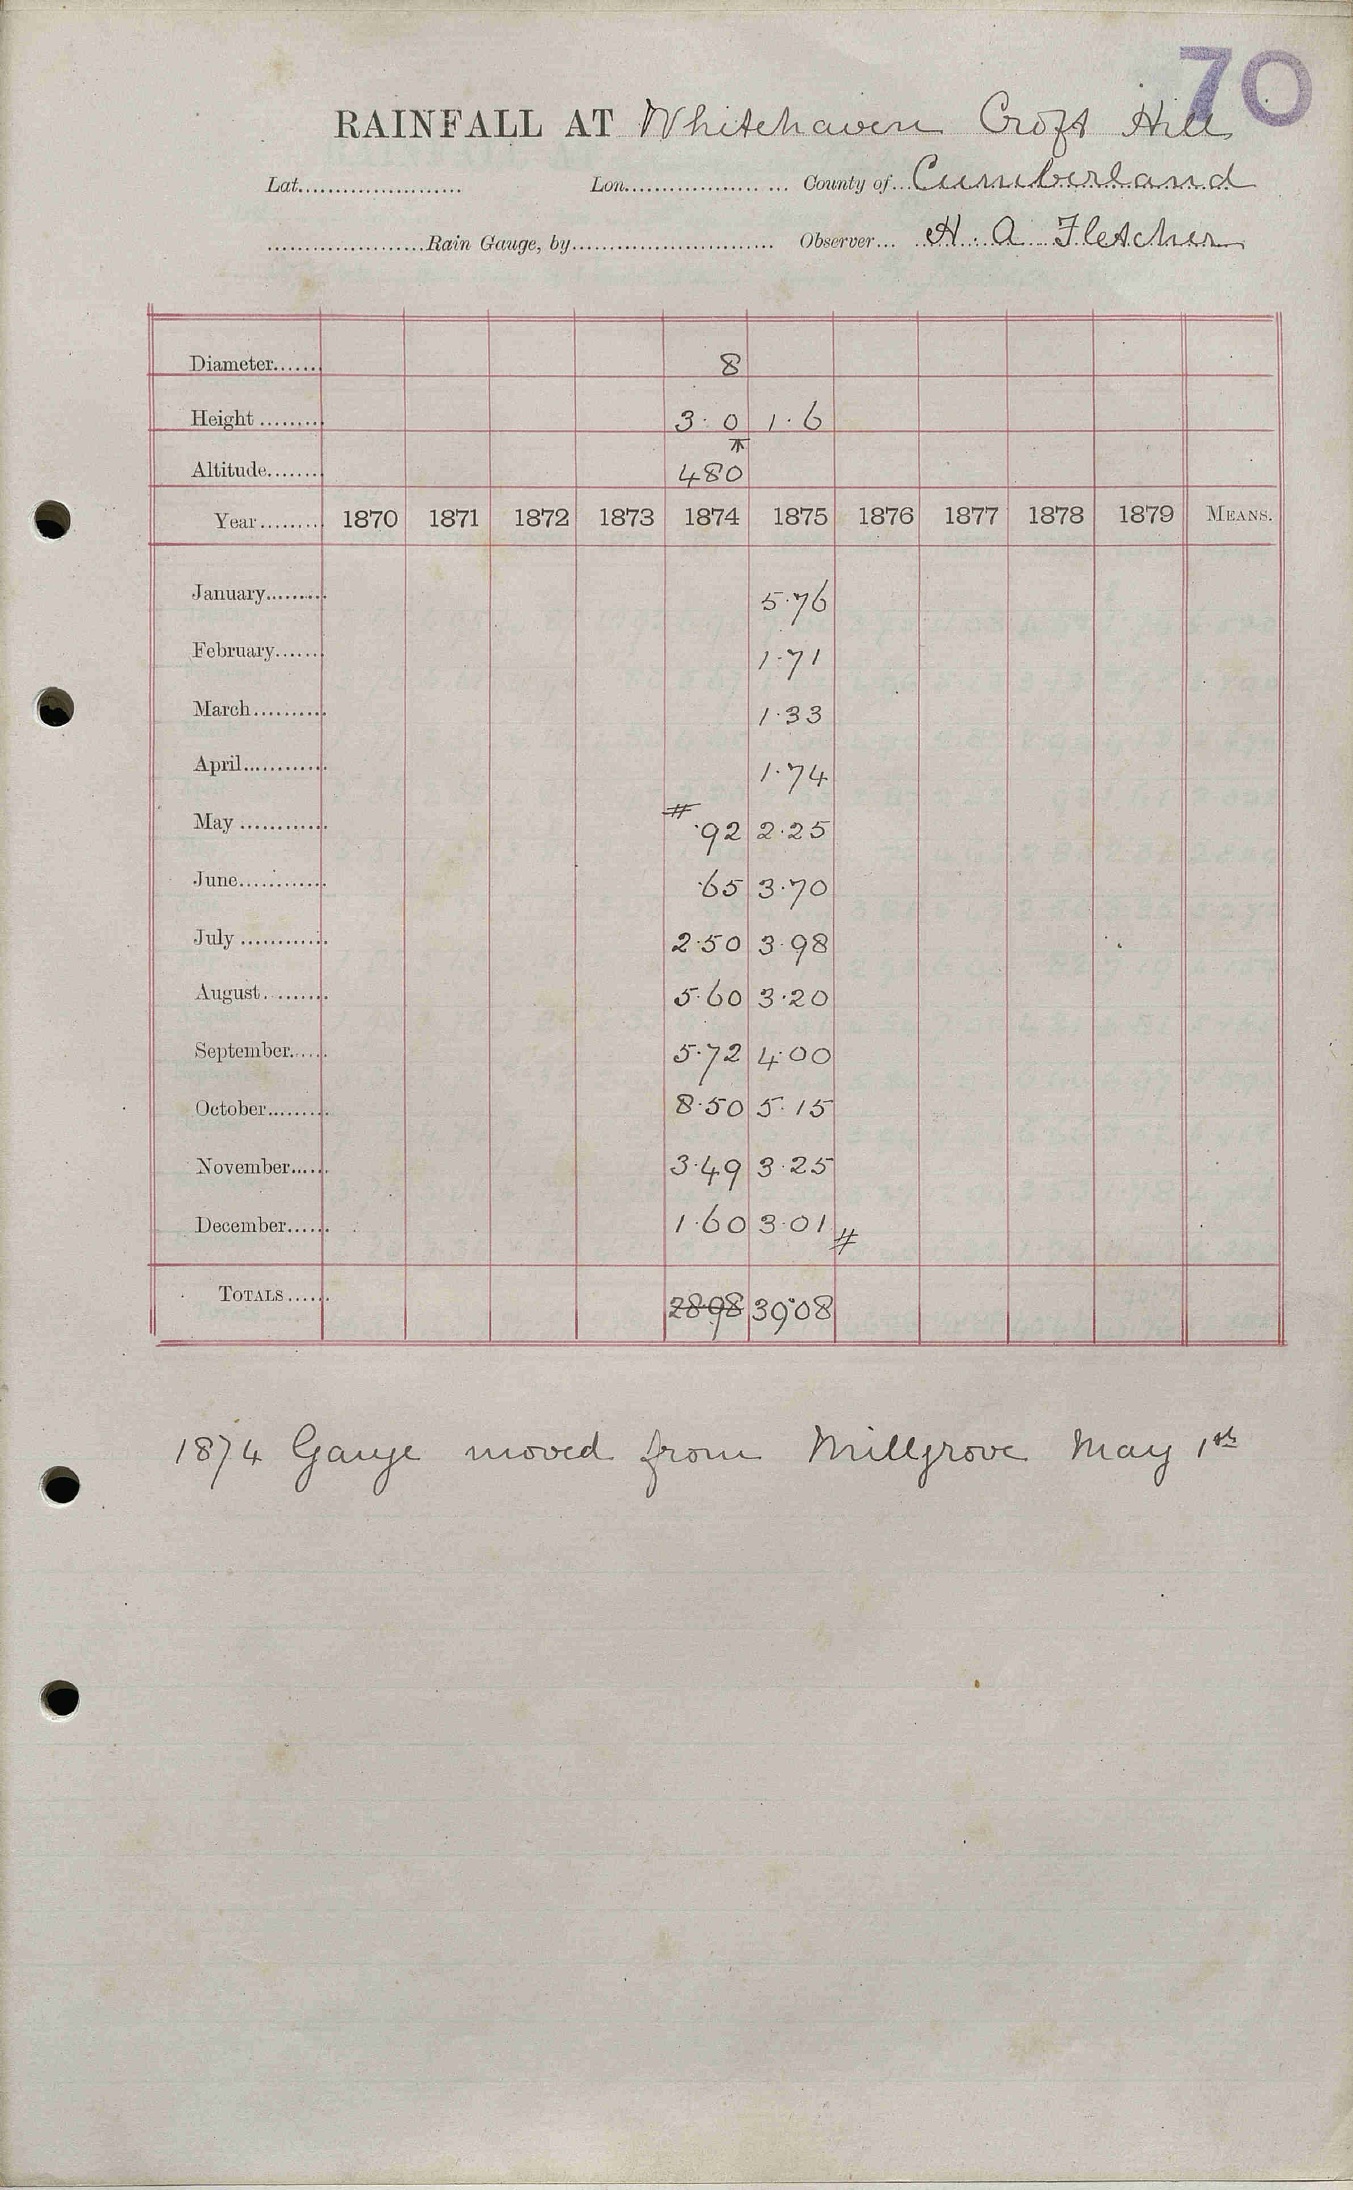 70
RAINFALL AT Whitehaven Croft Hill
Lat...................... Lon..................... County of... Cumberland
.....................Rain Gauge, by........................... Observer... H. A. Fletcher
Diameter....... 8
Height ......... 3.0 1.6
Altitude........ 480
Year......... 1870 1871 1872 1873 1874 1875 1876 1877 1878 1879 MEANS.
January......... 5.76
February....... 1.71
March.......... 1.33
April............ 1.74
May ............ # .92 2.25
June............ .65 3.70
July ............ 2.50 3.98
August......... 5.60 3.20
September...... 5.72 4.00
October......... 8.50 5.15
November...... 3.49 3.25
December...... 1.60 3.01 #
TOTALS...... 28.98 39.08
1874 Gauge moved from Millgrove May 1st